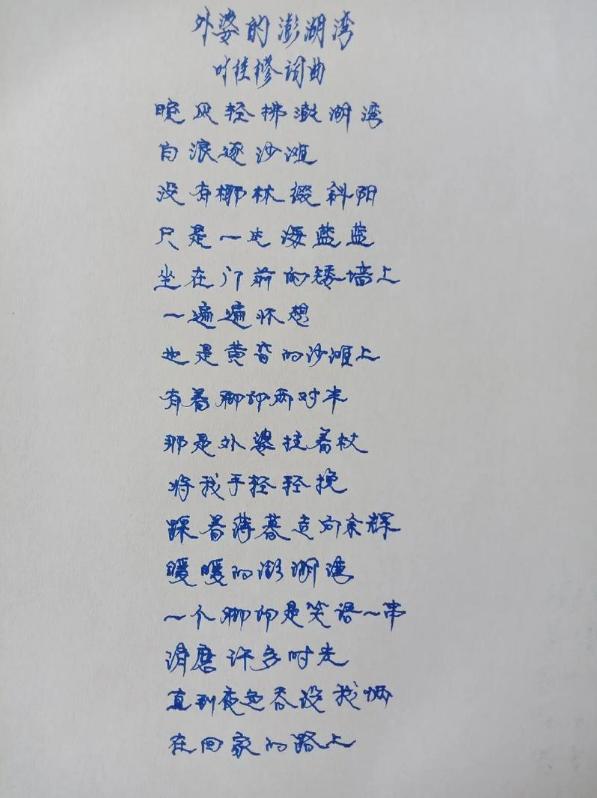 外婆的澎湖湾
叶佳修词曲
晚风轻拂澎湖湾
白浪逐沙滩
没有椰林缀斜阳
只是一片海蓝蓝
坐在门前的矮墙上
一遍遍怀想
也是黄昏的沙滩上
有着脚印两对半
那是外婆拄着杖
将我手轻轻挽
踩着薄暮走向余辉
暖暖的澎湖湾
一个脚印是笑语一串
消磨许多时光
直到夜色吞没我俩
在回家的路上